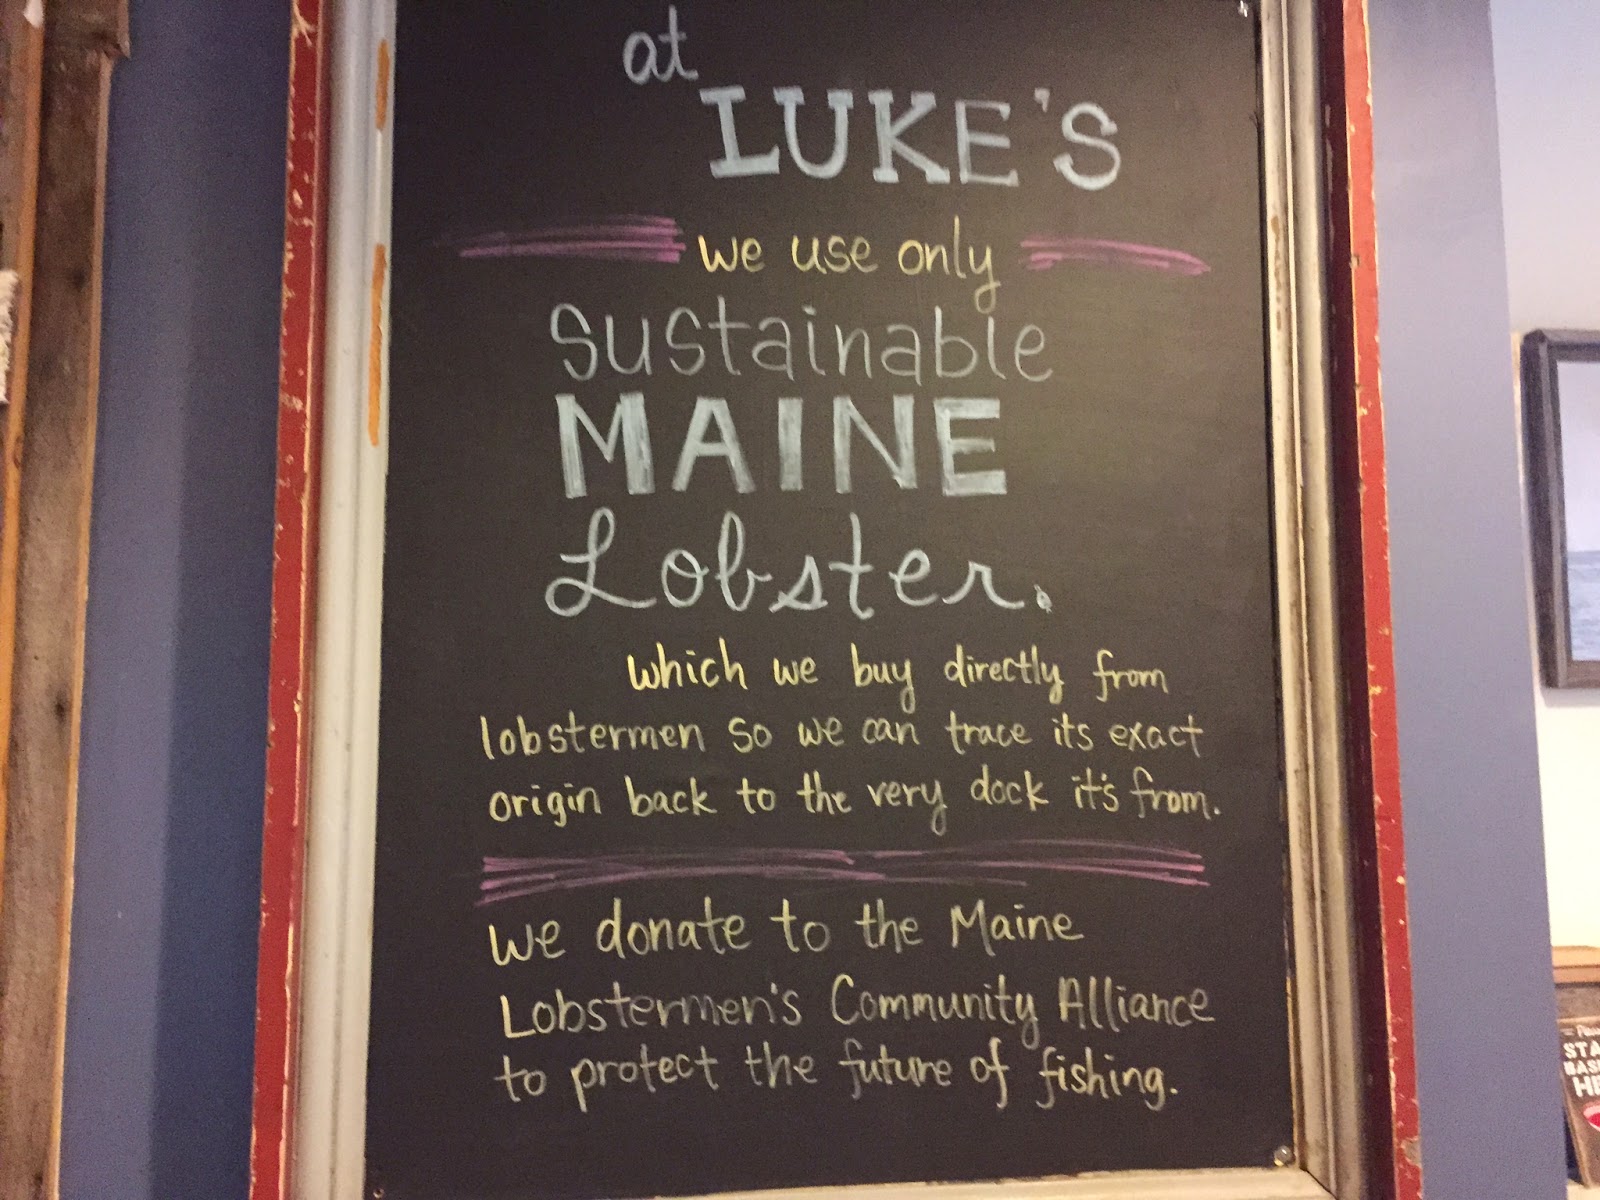 at
LUKE'S
we use only
sustainable
MAINE
Lobster.
which we buy directly from
lobstermen so we can trace its exact
origin back to the very dock it's from.
We donate to the Maine
Lobstermen's Community Alliance
to protect the future of fishing.
STA
BAS
HE